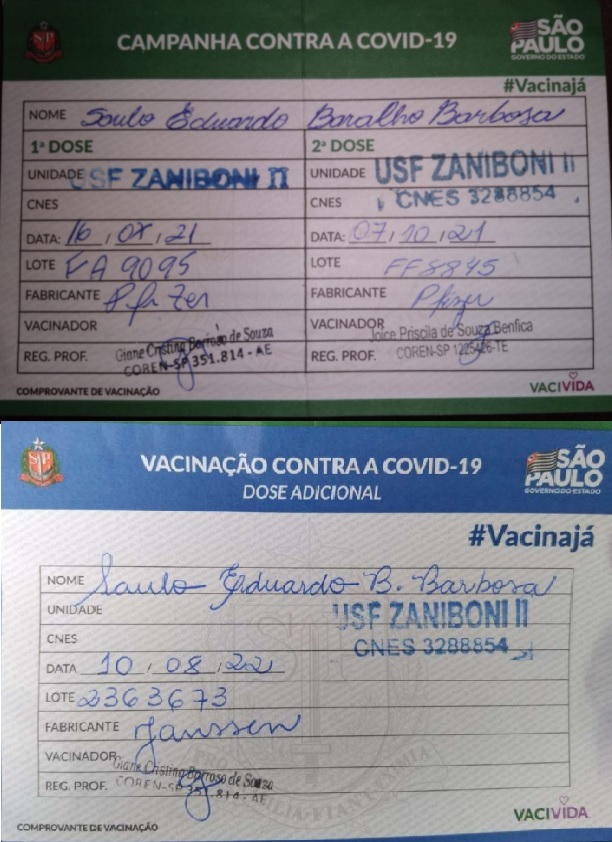 CAMPANHA CONTRA A COVID-19
SÃO PAULO
GOVERNO DO ESTADO
#Vacinajá
NOME Saulo Eduardo Baralho Barbosa
1ª DOSE 2ª DOSE
UNIDADE USF ZANIBONI II UNIDADE USF ZANIBONI II
CNES CNES CNES 3288854
DATA: 16 / 08 / 21 DATA: 07 / 10 / 21
LOTE FA 9095 LOTE FF8845
FABRICANTE Pfizer FABRICANTE Pfizer
VACINADOR VACINADOR Joice Priscila de Souza Benfica
REG. PROF. Giane Cristina Barroso de Souza REG. PROF. COREN-SP 1225426-TE
COREN-SP 351.814 - AE
COMPROVANTE DE VACINAÇÃO VACIVIDA
SP
VACINAÇÃO CONTRA A COVID-19
DOSE ADICIONAL
SÃO PAULO
GOVERNO DO ESTADO
#Vacinajá
NOME Saulo Eduardo B. Barbosa
UNIDADE USF ZANIBONI II
CNES CNES 3288854
DATA 10 / 08 / 22
LOTE 2363673
FABRICANTE Janssen
VACINADOR Giane Cristina Barroso de Souza
REG. PROF. COREN-SP 351.814 - AE
COMPROVANTE DE VACINAÇÃO VACIVIDA